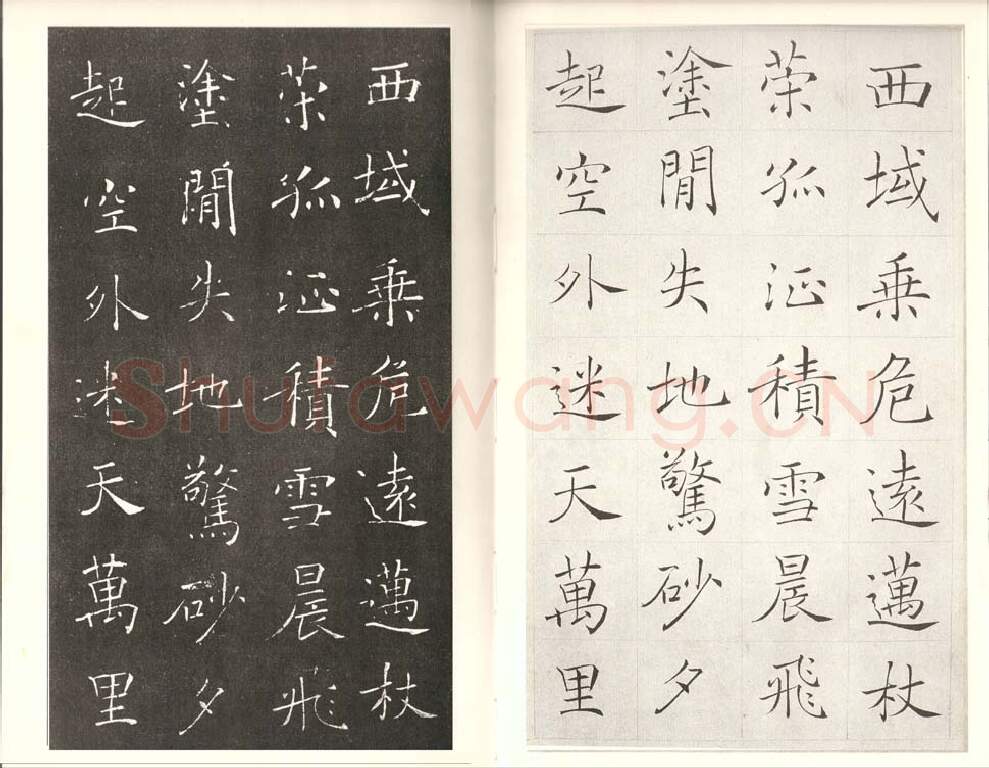 西域乗危遠邁杖
茦孤征積雪晨飛
塗閒失地驚砂夕
起空外迷天萬里
西域乗危遠邁杖
茦孤征積雪晨飛
塗閒失地驚砂夕
起空外迷天萬里
Shufawang.CN